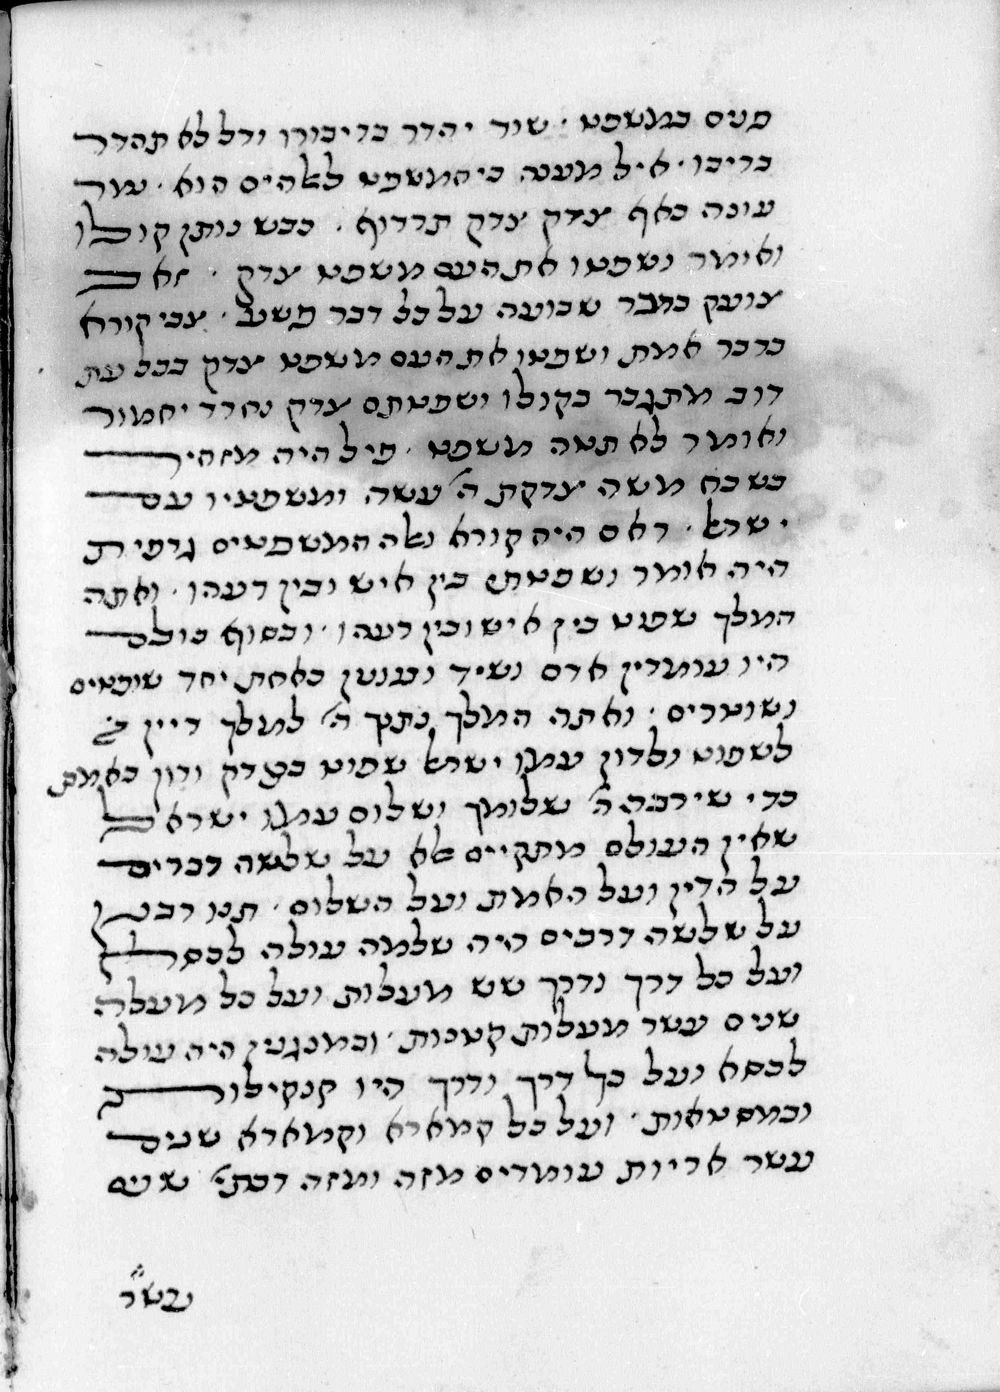 פנים במשפט · שור יהדר בדיבורו ודל לא תהדר
בריבו · איל מענה כי המשפט לאלהים הוא · נמר
עונה כאף צדק צדק תרדוף · כבש נותן קולו
ואומר ושפטו את העם משפט צדק · זאב
צועק כדבר שבועה על כל דבר פשע · צבי קורא
בדבר אמת ושפטו את העם משפט צדק בכל עת
דוב מתגבר בקולו ושפטתם צדק וחרד יחמור
ואומר לא תטה משפט · פיל היה מזהיר
בשבח משה צדקת ה׳ עשה ומשפטיו עם
ישראל · ראם היה קורא ואלה המשפטים גרפית
היה אומר ושפטתי בין איש ובין רעהו · ואתה
המלך שפוט בין איש ובין רעהו · ובסוף כולם
היו עומדין אדם ושיד ונענטין כאחת יחד שופטים
ושוטרים · ואתה המלך נתנך ה׳ למלך דיין
לשפוט ולדון עמו ישראל שפוט בצדק ודון באמת
כדי שירבה ה׳ שלומך ושלום עמו ישראל
שאין העולם מתקיים אלא על שלשה דברים
על הדין ועל האמת ועל השלום · תנו רבנן
על שלשה דרכים היה שלמה עולה לכסא
ועל כל דרך ודרך שש מעלות ועל כל מעלה
שנים עשר מעלות קטנות · ובמנגנון היה עולה
לכסא ועל כל דרך ודרך היו קנקילות
ובמסטאות · ועל כל קמארא וקמארא שנים
עשר אריות עומדים מזה ומזה דכתי׳ שנים
עשר